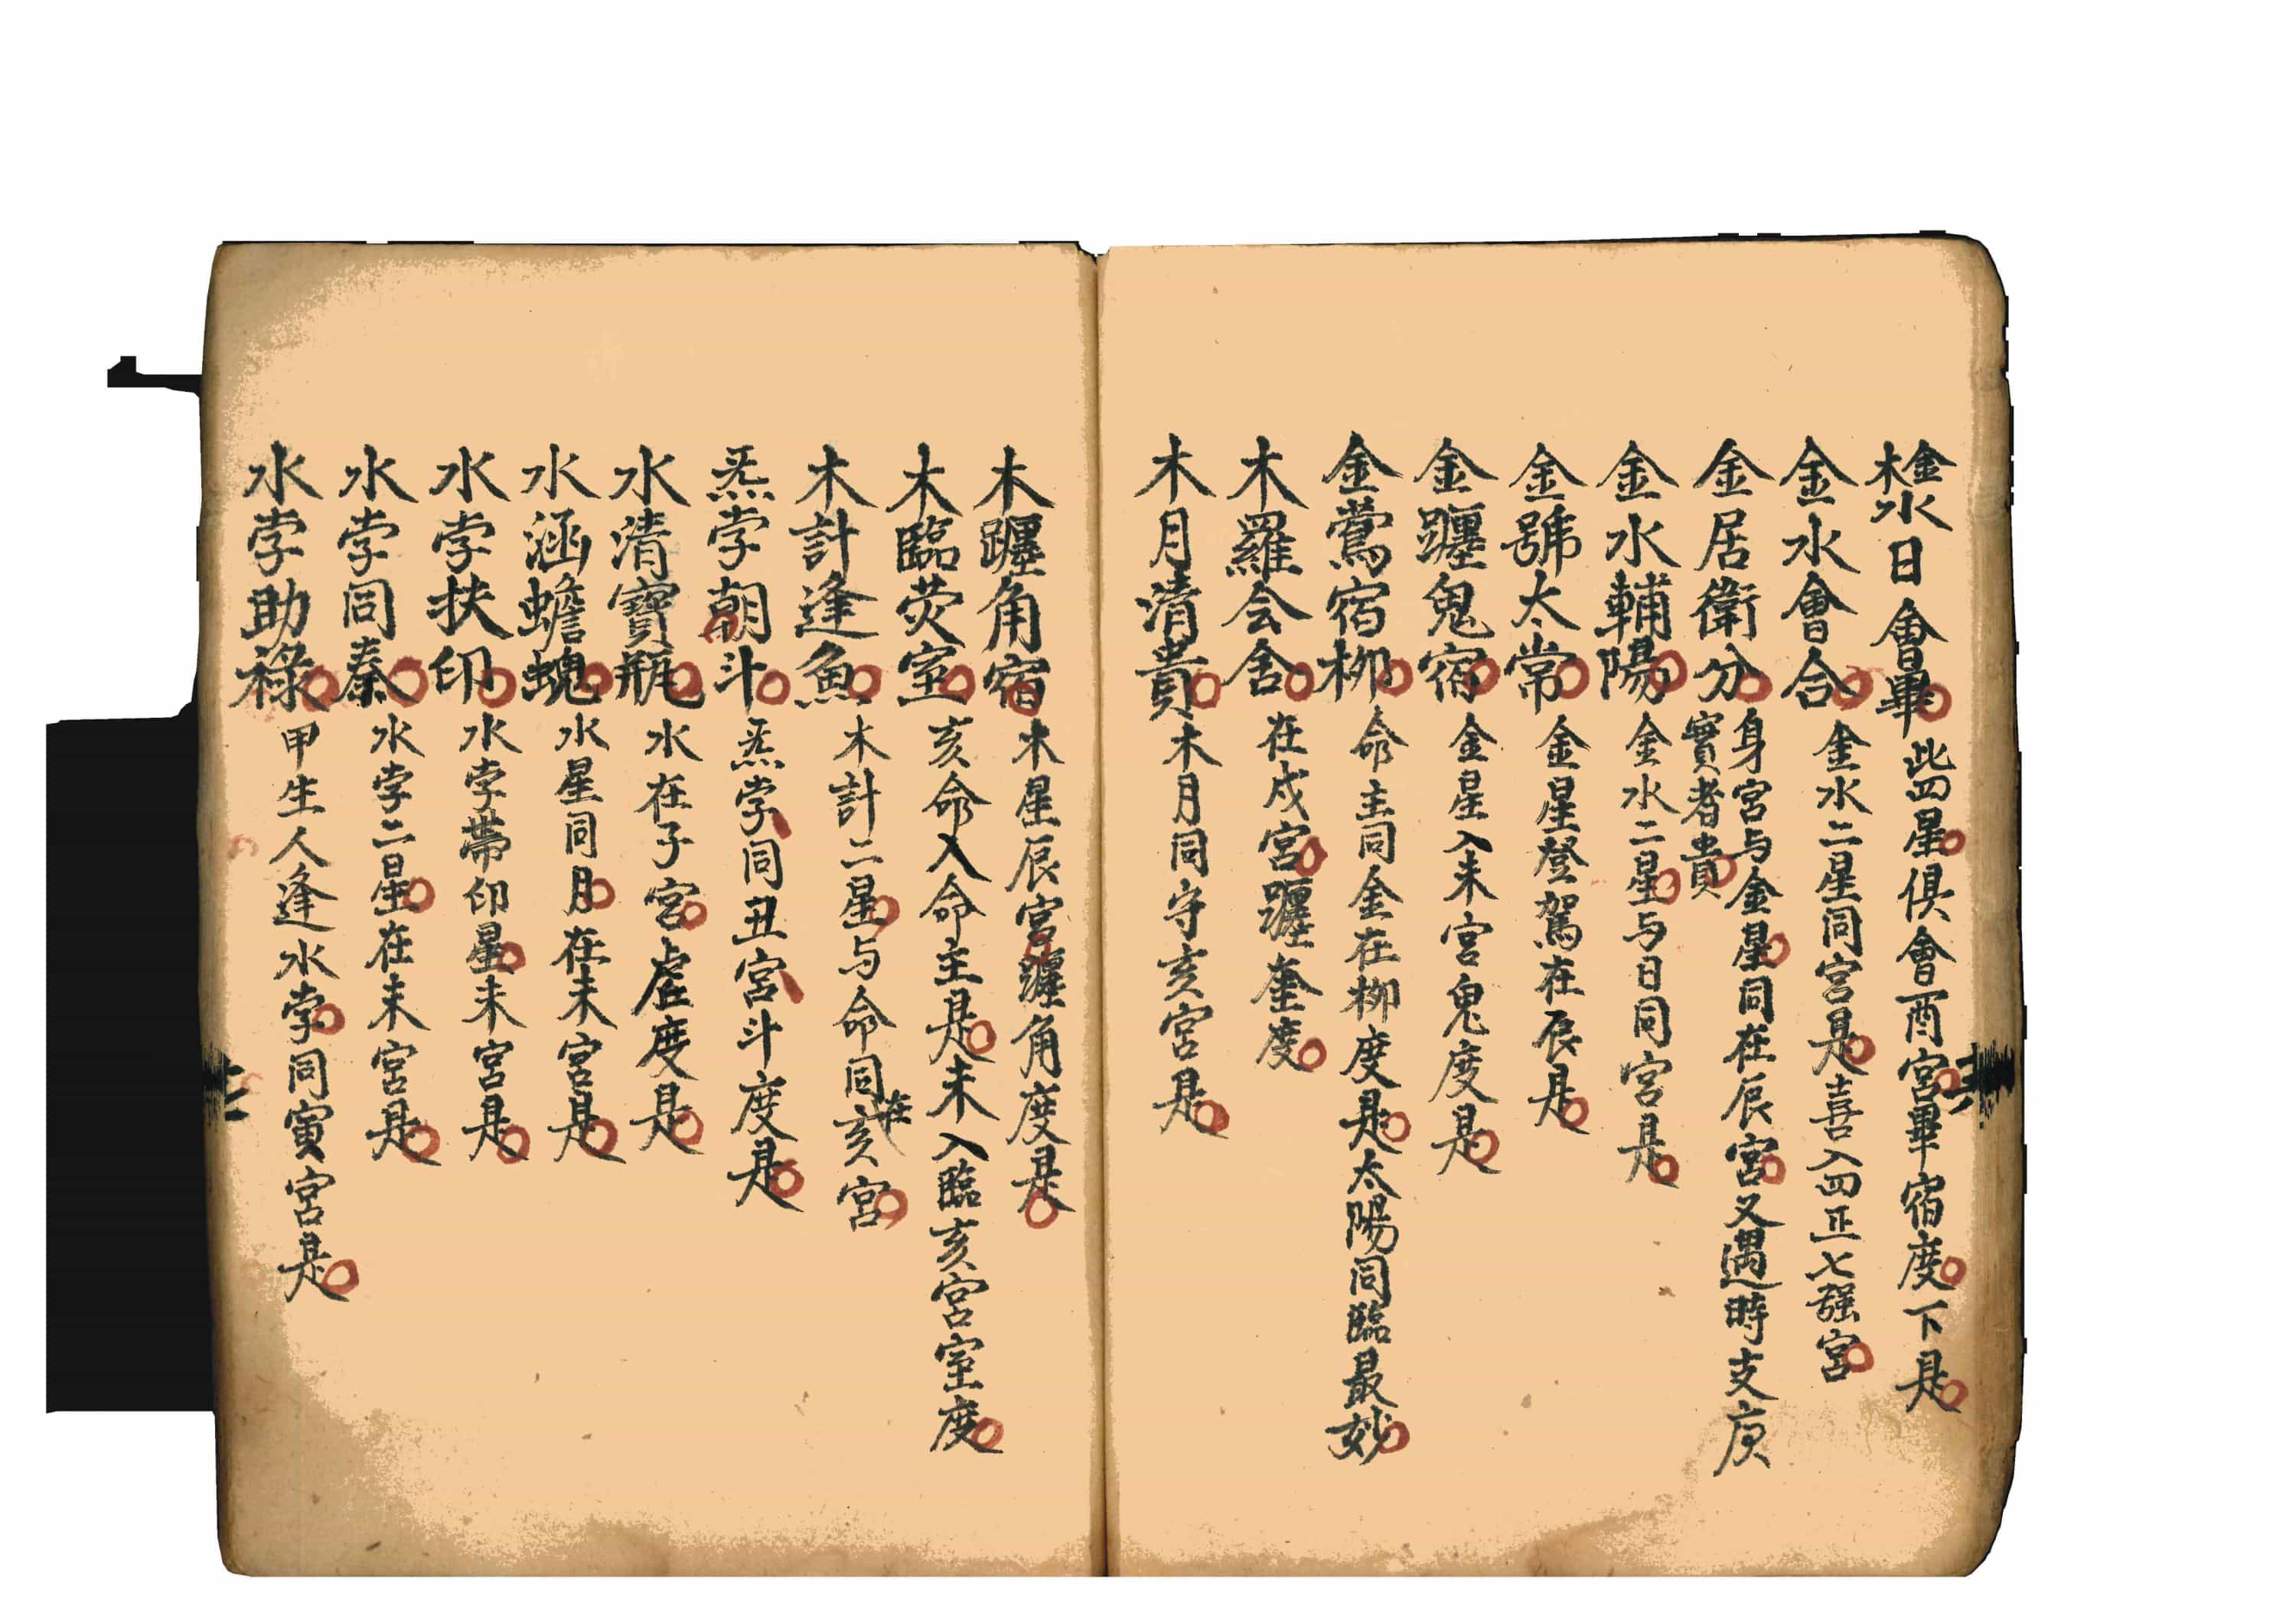 金木水日會畢 此四星俱會酉宮畢宿度下是
金水會合 金水二星同宮是喜入四正七强宮
金居衛分 身宮与金星同在辰宮又遇時支庚
實者貴
金水輔陽 金水二星与日同宮是
金號太常 金星登駕在辰是
金躔鬼宿 金星入未宮鬼度是
金鶯宿柳 命主同金在柳度是太陽同臨最妙
木羅会舍 在戌宮躔奎度
木月清貴 木月同守亥宮是
木躔角宿 木星辰宮躔角度是
木臨荧室 亥命入命主是未入臨亥宮室度
木計逢魚 木計二星与命同在亥宮
炁孛朝斗 炁孛同丑宮斗度是
水清寶瓶 水在子宮虛度是
水涵蟾魄 水星同月在未宮是
水孛扶印 水孛帶印星未宮是
水孛同秦 水孛二星在未宮是
水孛助祿 甲生人逢水孛同寅宮是